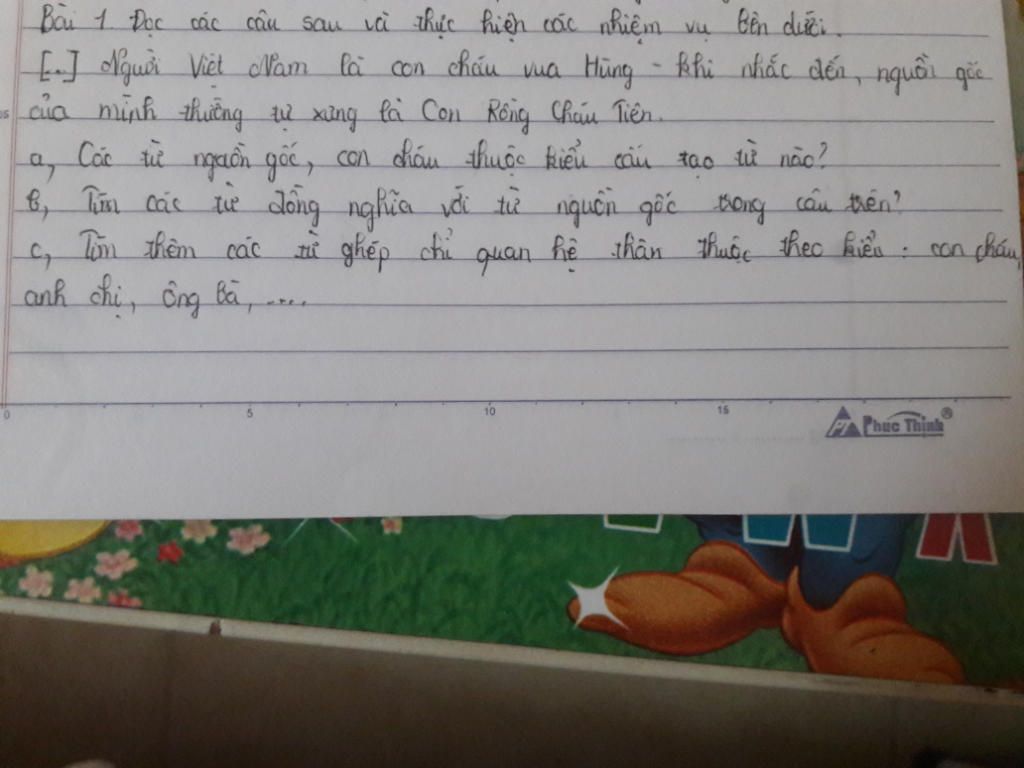 Bài 1. Đọc các câu sau và thực hiện các nhiệm vụ bên dưới.
[...] Người Việt Nam là con cháu vua Hùng - khi nhắc đến, nguồn gốc
của mình thường tự xưng là Con Rồng Cháu Tiên.
a, Các từ nguồn gốc, con cháu thuộc kiểu cấu tạo từ nào?
b, Tìm các từ đồng nghĩa với từ nguồn gốc trong câu trên?
c, Tìm thêm các từ ghép chỉ quan hệ thân thuộc theo kiểu : con cháu,
anh chị, ông bà, ....
0 5 10 15
Phuc Thinh®